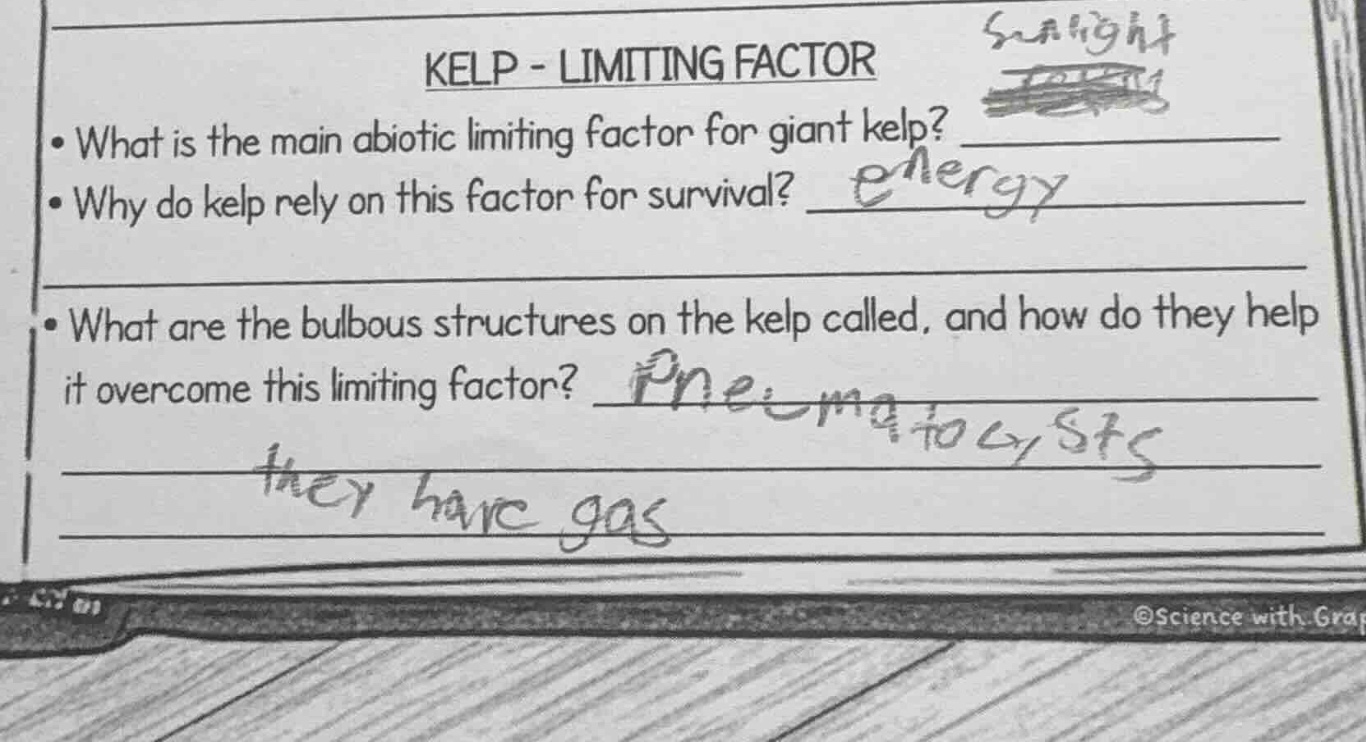 Sunlight
KELP - LIMITING FACTOR
• What is the main abiotic limiting factor for giant kelp?
• Why do kelp rely on this factor for survival? energy
• What are the bulbous structures on the kelp called, and how do they help
it overcome this limiting factor? Pneumatocysts
they have gas
©Science with